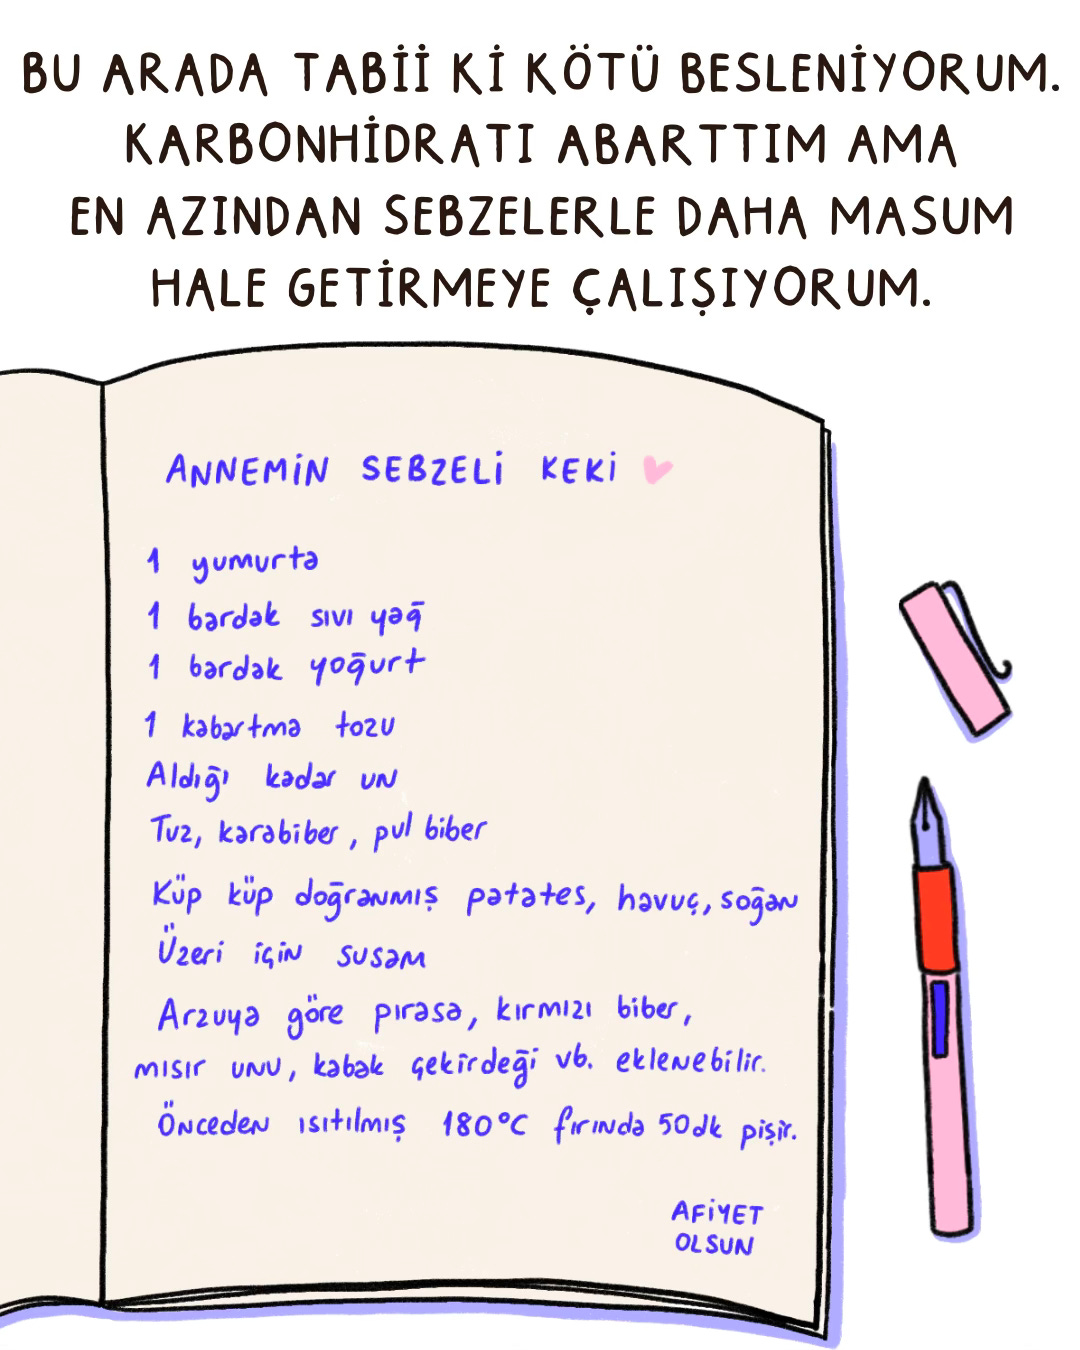 BU ARADA TABİİ Kİ KÖTÜ BESLENİYORUM.
KARBONHİDRATI ABARTTIM AMA
EN AZINDAN SEBZELERLE DAHA MASUM
HALE GETİRMEYE ÇALIŞIYORUM.
ANNEMİN SEBZELİ KEKİ
1 yumurta
1 bardak sıvı yağ
1 bardak yoğurt
1 kabartma tozu
Aldığı kadar un
Tuz, karabiber, pul biber
Küp küp doğranmış patates, havuç, soğan
Üzeri için susam
Arzuya göre pırasa, kırmızı biber,
mısır unu, kabak çekirdeği vb. eklenebilir.
Önceden ısıtılmış 180°C fırında 50dk pişir.
AFİYET
OLSUN